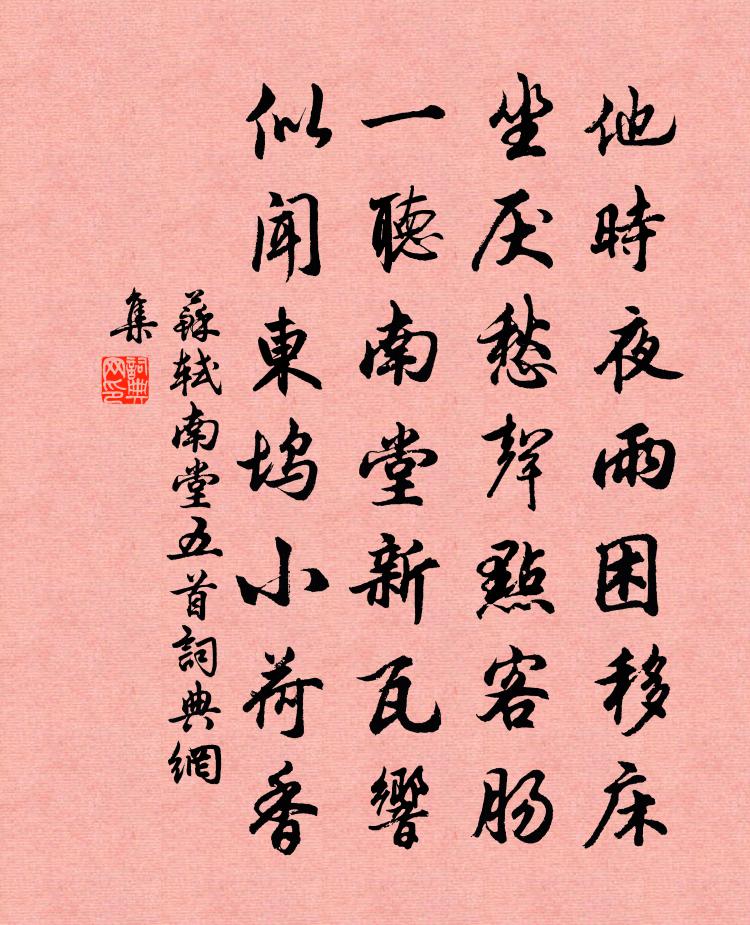 他時夜雨困移床
坐厌愁聲點客腸
一聽南堂新瓦響
似聞東塢小荷香
蘇軾南堂五首詞典網
集
詞典
网印